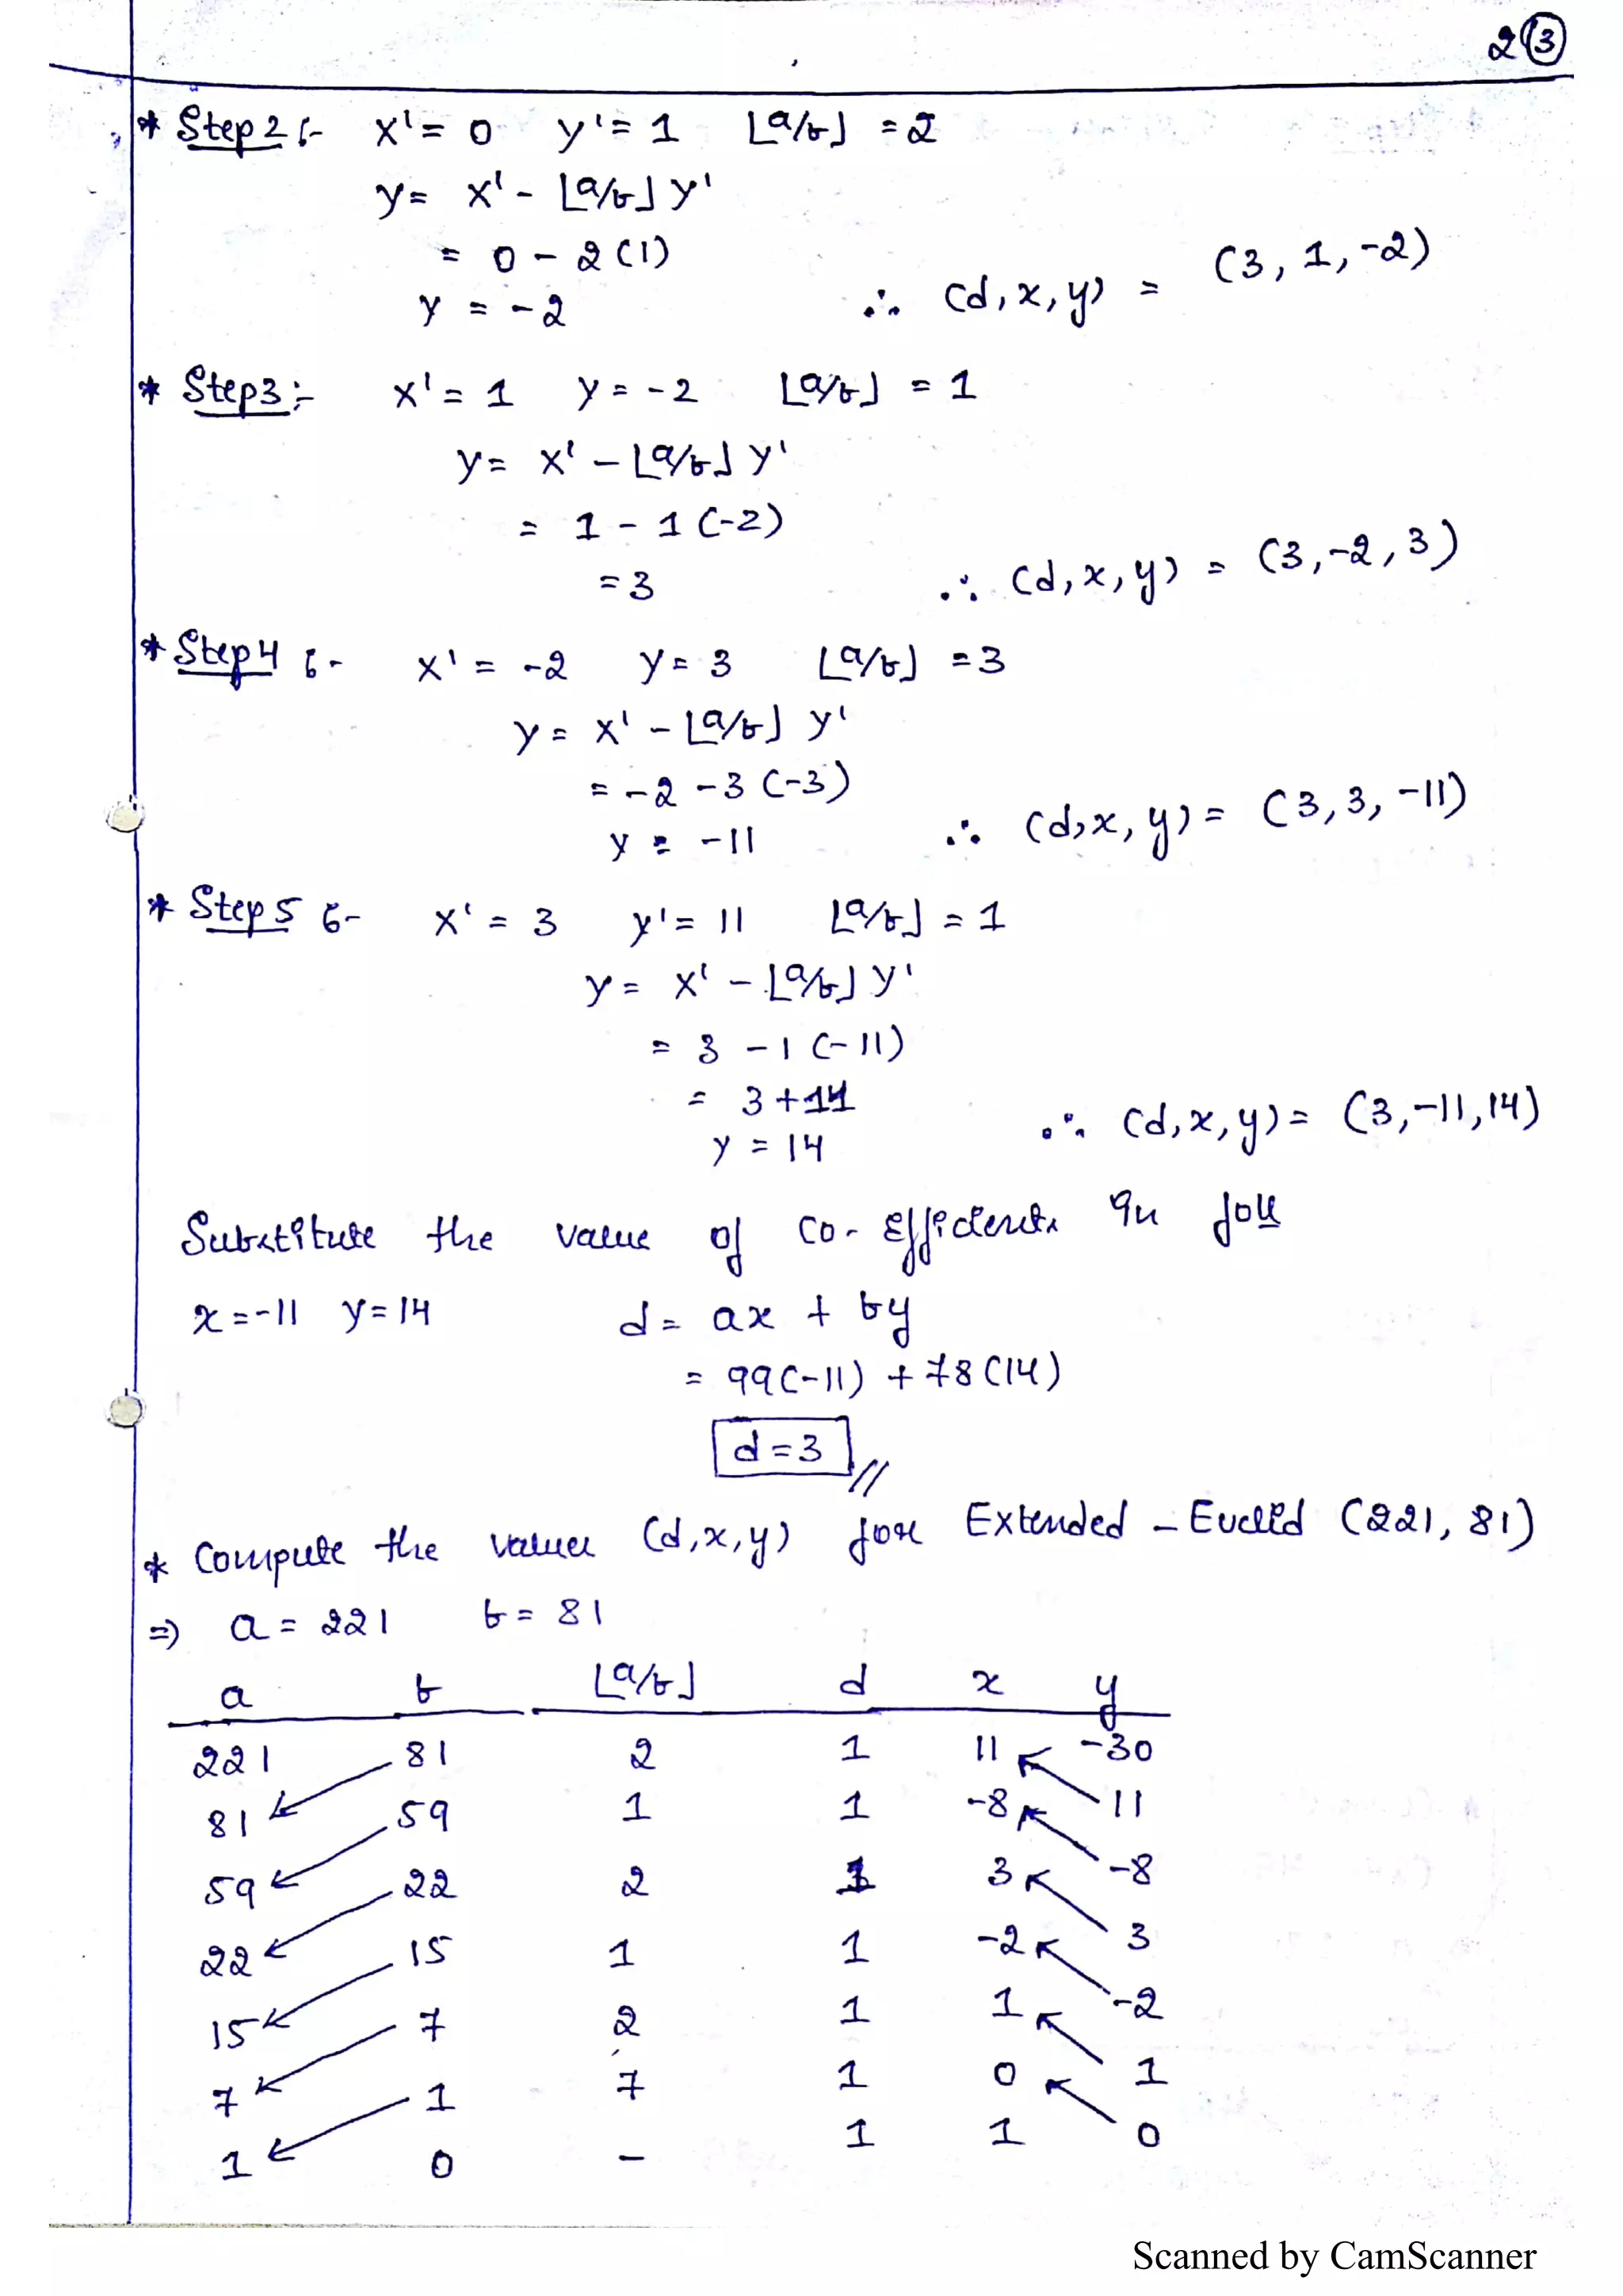 2 3
* Step 2 :- x' = 0 y' = 1 ⌊a/b⌋ = 2
y = x' - ⌊a/b⌋ y'
= 0 - 2 (1)
y = -2 ∴ (d, x, y) = (3, 1, -2)
* Step 3 :- x' = 1 y = -2 ⌊a/b⌋ = 1
y = x' - ⌊a/b⌋ y'
= 1 - 1 (-2)
= 3 ∴ (d, x, y) = (3, -2, 3)
* Step 4 :- x' = -2 y = 3 ⌊a/b⌋ = 3
y = x' - ⌊a/b⌋ y'
= -2 - 3 (-3)
y = -11 ∴ (d, x, y) = (3, 3, -11)
* Step 5 :- x' = 3 y' = 11 ⌊a/b⌋ = 1
y = x' - ⌊a/b⌋ y'
= 3 - 1 (-11)
= 3 + 11
y = 14 ∴ (d, x, y) = (3, -11, 14)
Substitute the value of co-efficients in
x = -11 y = 14 d = ax + by
= 99(-11) + 78(14)
d = 3 //
* Compute the values (d, x, y) for Extended - Euclid (221, 81)
⇒ a = 221 b = 81
a b ⌊a/b⌋ d x y
221 81 2 1 11 -30
81 59 1 1 -8 11
59 22 2 1 3 -8
22 15 1 1 -2 3
15 7 2 1 1 -2
7 1 7 1 0 1
1 0 - 1 1 0
Scanned by CamScanner